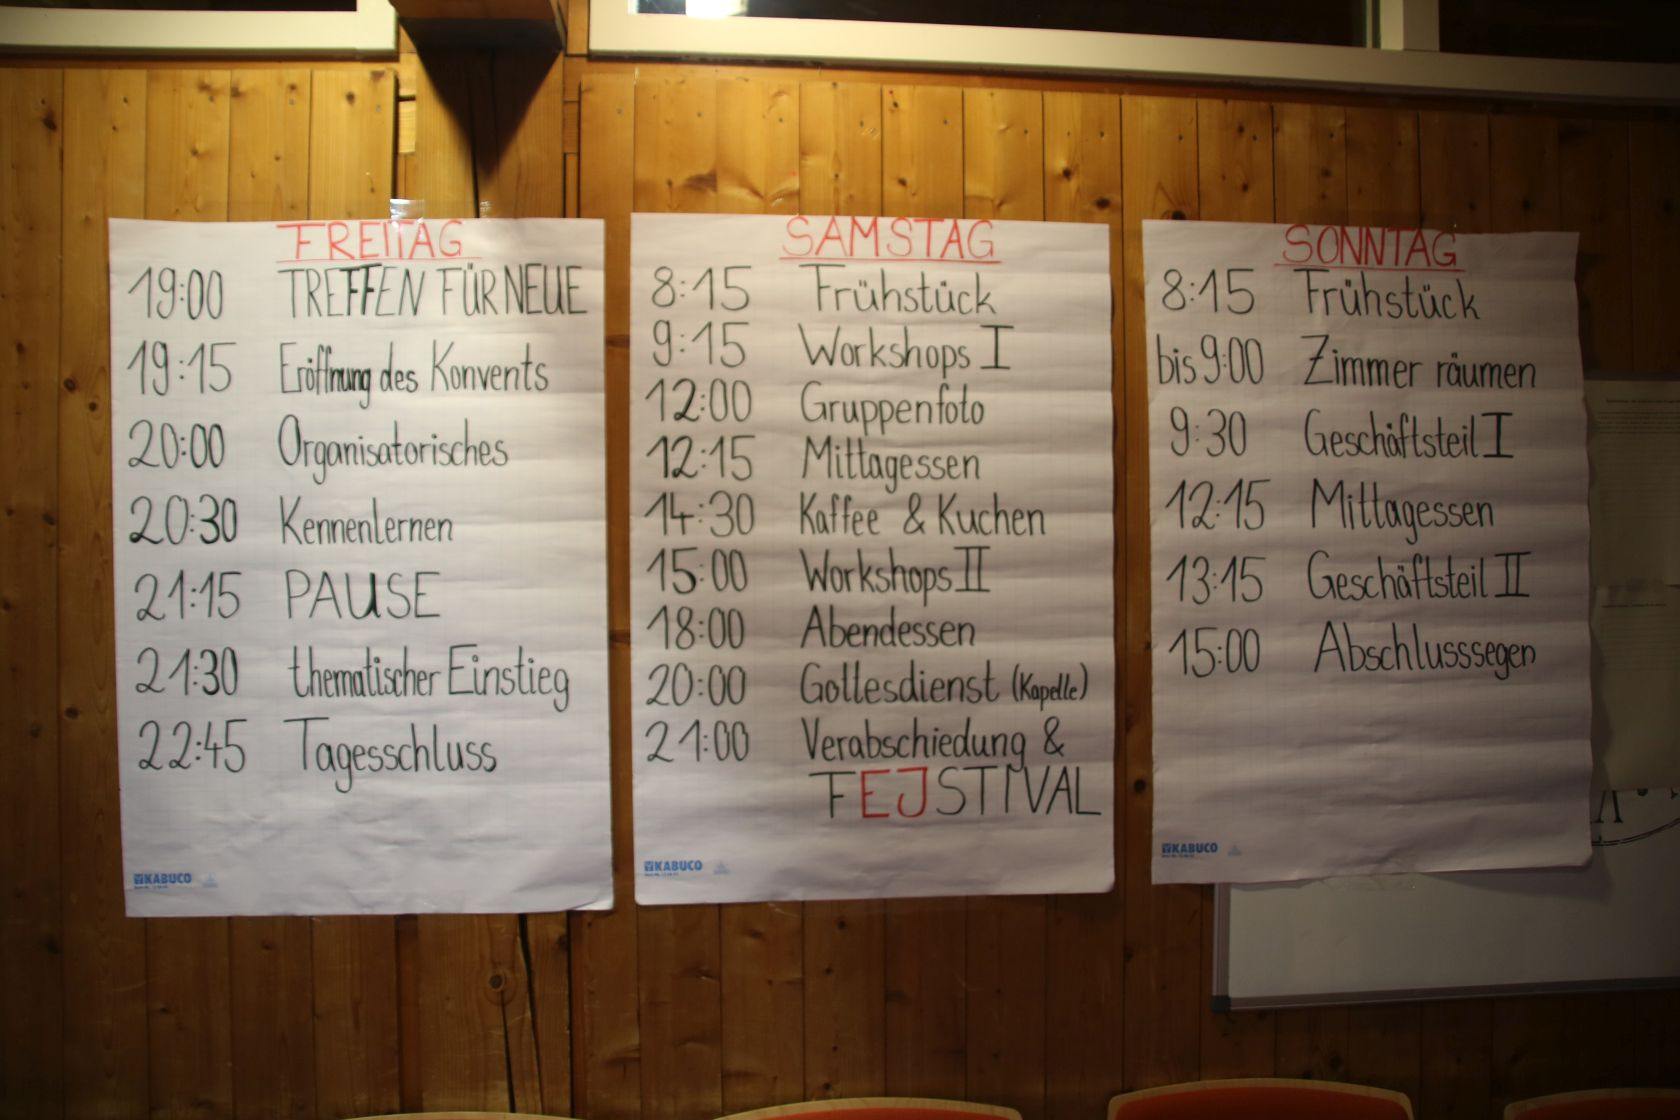 FREITAG
19:00 TREFFEN FÜR NEUE
19:15 Eröffnung des Konvents
20:00 Organisatorisches
20:30 Kennenlernen
21:15 PAUSE
21:30 thematischer Einstieg
22:45 Tagesschluss
KABUCO
SAMSTAG
8:15 Frühstück
9:15 Workshops I
12:00 Gruppenfoto
12:15 Mittagessen
14:30 Kaffee & Kuchen
15:00 Workshops II
18:00 Abendessen
20:00 Gottesdienst (Kapelle)
21:00 Verabschiedung &
FEJSTIVAL
KABUCO
SONNTAG
8:15 Frühstück
bis 9:00 Zimmer räumen
9:30 Geschäftsteil I
12:15 Mittagessen
13:15 Geschäftsteil II
15:00 Abschlusssegen
KABUCO